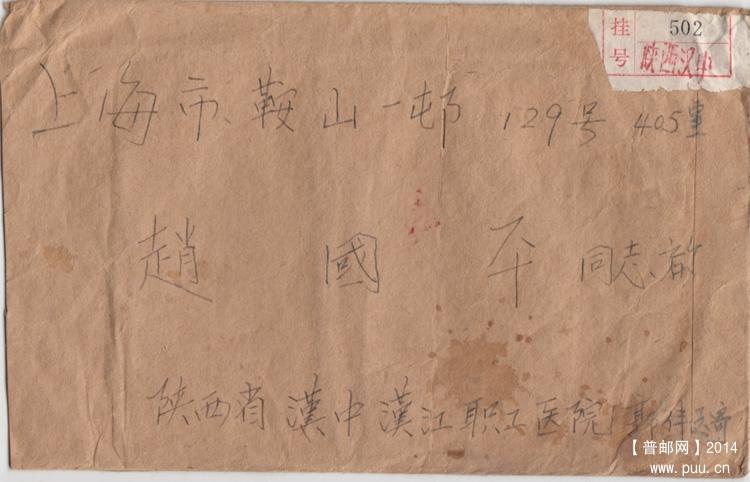 挂号 502
陕西汉中
上海市鞍山一邨 129号 405室
趙國平 同志啟
陕西省漢中漢江职工医院
【普邮网】2014
www.puu.cn